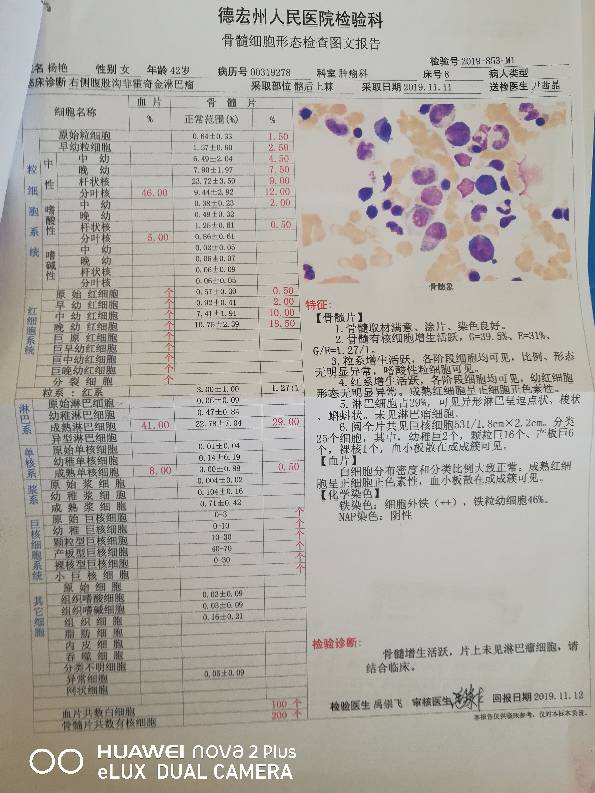 德宏州人民医院检验科
骨髓细胞形态检查图文报告
检验号 2019-853-M1
名 杨艳 性别 女 年龄 42岁 病历号 00319278 科室 肿瘤科 床号 8 病人类型
临床诊断 右侧腹股沟非霍奇金淋巴瘤 采取部位 髂后上棘 采取日期 2019.11.11 送检医生
细胞名称 血片 骨髓片
% 正常范围(%) %
粒细胞系统
原始粒细胞 0.64±0.33 1.50
早幼粒细胞 1.57±0.60 2.50
中性 中幼 6.49±2.04 4.50
晚幼 7.90±1.97 7.50
杆状核 23.72±3.50 9.00
分叶核 46.00 9.44±2.92 12.00
嗜酸性 中幼 0.38±0.23 2.00
晚幼 0.49±0.32
杆状核 1.25±0.61 0.50
分叶核 5.00 0.86±0.61
嗜碱性 中幼 0.02±0.05
晚幼 0.06±0.07
杆状核 0.06±0.09
分叶核 0.06±0.05
红细胞系统
原始红细胞 个 0.57±0.30 0.50
早幼红细胞 个 0.92±0.41 2.00
中幼红细胞 个 7.41±1.91 10.00
晚幼红细胞 个 10.75±2.39 18.50
巨原红细胞 个
巨早幼红细胞 个
巨中幼红细胞 个
巨晚幼红细胞 个
分裂细胞 个
粒系:红系 3.00±1.00 1.27:1
淋巴系
原始淋巴细胞 0.05±0.09
幼稚淋巴细胞 0.47±0.84
成熟淋巴细胞 41.00 22.78±7.04 29.00
异型淋巴细胞
单核系
原始单核细胞 0.01±0.04
幼稚单核细胞 0.14±0.19
成熟单核细胞 8.00 3.00±0.88 0.50
浆系
原始浆细胞 0.004±0.02
幼稚浆细胞 0.104±0.16
成熟浆细胞 0.71±0.42
巨核细胞系统
原始巨核细胞 0-3 个
幼稚巨核细胞 0-10 个
颗粒型巨核细胞 10-30 个
产板型巨核细胞 40-70 个
裸核型巨核细胞 0-30 个
小巨核细胞 个
其它细胞
原始细胞
组织嗜酸细胞 0.02±0.09
组织嗜碱细胞 0.03±0.09
组织细胞 0.16±0.21
脂肪细胞
内皮细胞
吞噬细胞
分类不明细胞
异常细胞 0.05±0.09
网状细胞
血片共数白细胞 100 个
骨髓片共数有核细胞 200 个
骨髓象
特征:
【骨髓片】
1.骨髓取材满意、涂片、染色良好。
2.骨髓有核细胞增生活跃,G=39.5%,E=31%,
G/E=1.27/1。
3.粒系增生活跃,各阶段细胞均可见,比例、形态
无明显异常,嗜酸性粒细胞可见。
4.红系增生活跃,各阶段细胞均可见,幼红细胞
形态无明显异常。成熟红细胞呈正细胞正色素性。
5.淋巴细胞占29%,可见异形淋巴呈逗点状、梭状
、蝌蚪状。未见淋巴瘤细胞。
6.阅全片共见巨核细胞531/1.8cm×2.2cm。分类
25个细胞,其中,幼稚巨2个,颗粒巨16个、产板巨6
个,裸核1个,血小板散在或成簇可见。
【血片】
白细胞分布密度和分类比例大致正常。成熟红细
胞呈正细胞正色素性,血小板散在或成簇可见。
【化学染色】
铁染色:细胞外铁(++),铁粒幼细胞46%。
NAP染色:阴性
检验诊断:
骨髓增生活跃,片上未见淋巴瘤细胞,请
结合临床。
检验医生 禹崇飞 审核医生 回报日期 2019.11.12
本报告仅供临床参考,仅对本标本负责。
HUAWEI nova 2 Plus
eLUX DUAL CAMERA